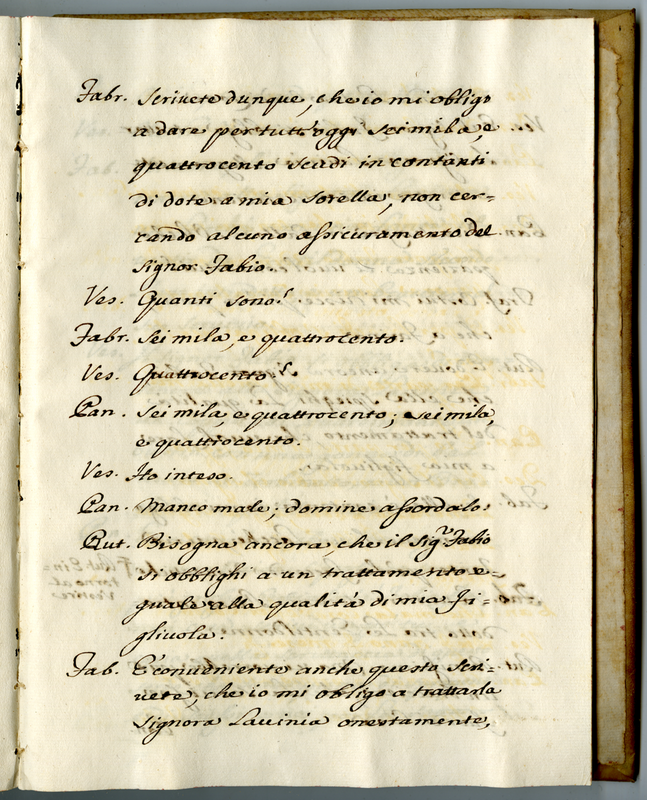 Fabr. Scrivete dunque, che io mi obligo
a dare per tutt'oggi sei mila, e
quattrocento scudi in contanti
di dote a mia sorella, non cer=
cando alcuno assicuramento del
Signor Fabio.
Ves. Quanti sono?
Fabr. Sei mila, e quattrocento.
Ves. Quattrocento?
Pan. Sei mila, e quattrocento; sei mila,
e quattrocento.
Ves. Ho inteso.
Pan. Manco male; domine assordalo.
Rut. Bisogna ancora, che il Sigr. Fabio
si obblighi a un trattamento e=
guale alla qualità di mia Fi=
gliuola.
Fab. È conveniente anche questo scri=
vete, che io mi obligo a trattar la
Signora Lavinia onestamente,